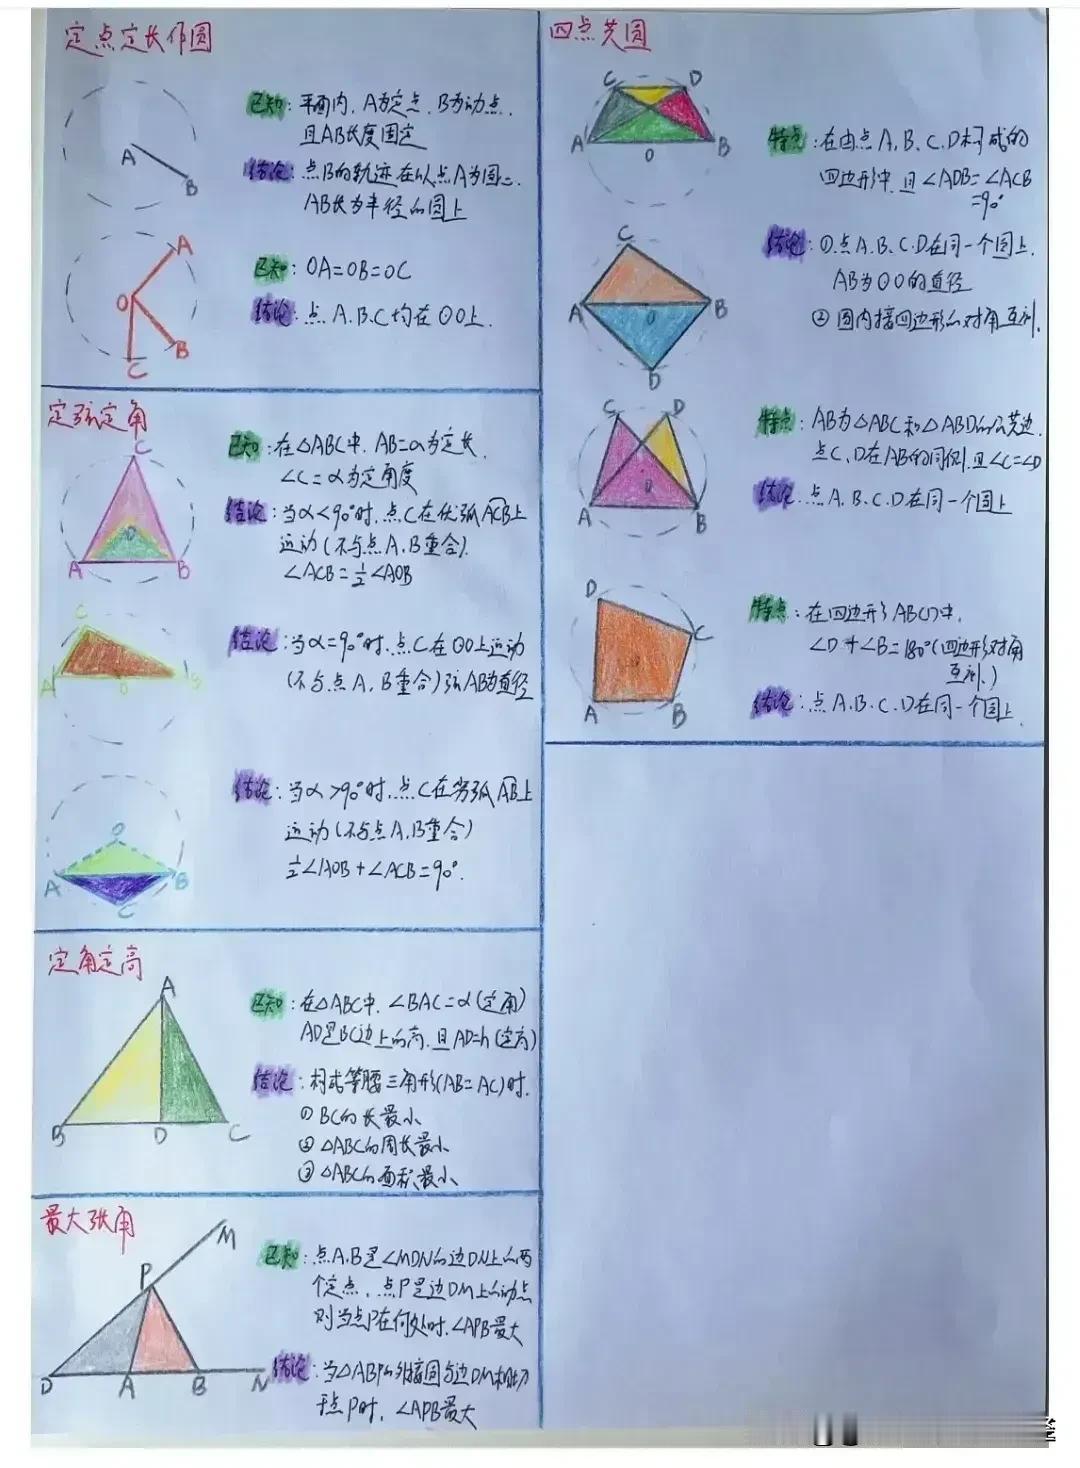 定点定长作圆
A
B
已知：平面内，A为定点，B为动点，
且AB长度固定
结论：点B的轨迹在以点A为圆心，
AB长为半径的圆上
A
O
B
C
已知：OA=OB=OC
结论：点A.B.C均在⊙O上.
定弦定角
C
O
A
B
已知：在△ABC中，AB=α为定长，
∠C=α为定角度
结论：当α<90°时，点C在优弧ACB上
运动(不与点A、B重合)，
∠ACB=½∠AOB
C
A
O
B
结论：当α=90°时，点C在⊙O上运动
(不与点A，B重合)弦AB为直径
O
A
B
C
结论：当α>90°时，点C在劣弧AB上
运动(不与点A，B重合)
½∠AOB+∠ACB=90°.
定角定高
A
B
D
C
已知：在△ABC中，∠BAC=α(定角)
AD是BC边上的高，且AD=h(定高)
结论：构成等腰三角形(AB=AC)时，
① BC的长最小
② △ABC的周长最小
③ △ABC的面积最小
最大张角
M
P
D
A
B
N
已知：点A.B是∠MDN的边DN上的两
个定点，点P是边DM上的动点
则当点P在何处时，∠APB最大
结论：当△ABP的外接圆与边DM相切
于点P时，∠APB最大
四点共圆
C
D
A
O
B
特点：在由点A、B、C、D构成的
四边形中，且∠ADB=∠ACB
=90°
C
A
O
B
D
结论：①点A、B、C、D在同一个圆上，
AB为⊙O的直径
②圆内接四边形的对角互补.
C
D
O
A
B
特点：AB为△ABC和△ABD的公共边，
点C、D在AB的同侧，且∠C=∠D
结论：点A、B、C、D在同一个圆上
D
C
A
B
特点：在四边形ABCD中，
∠D+∠B=180°(四边形对角
互补.)
结论：点A.B.C.D在同一个圆上